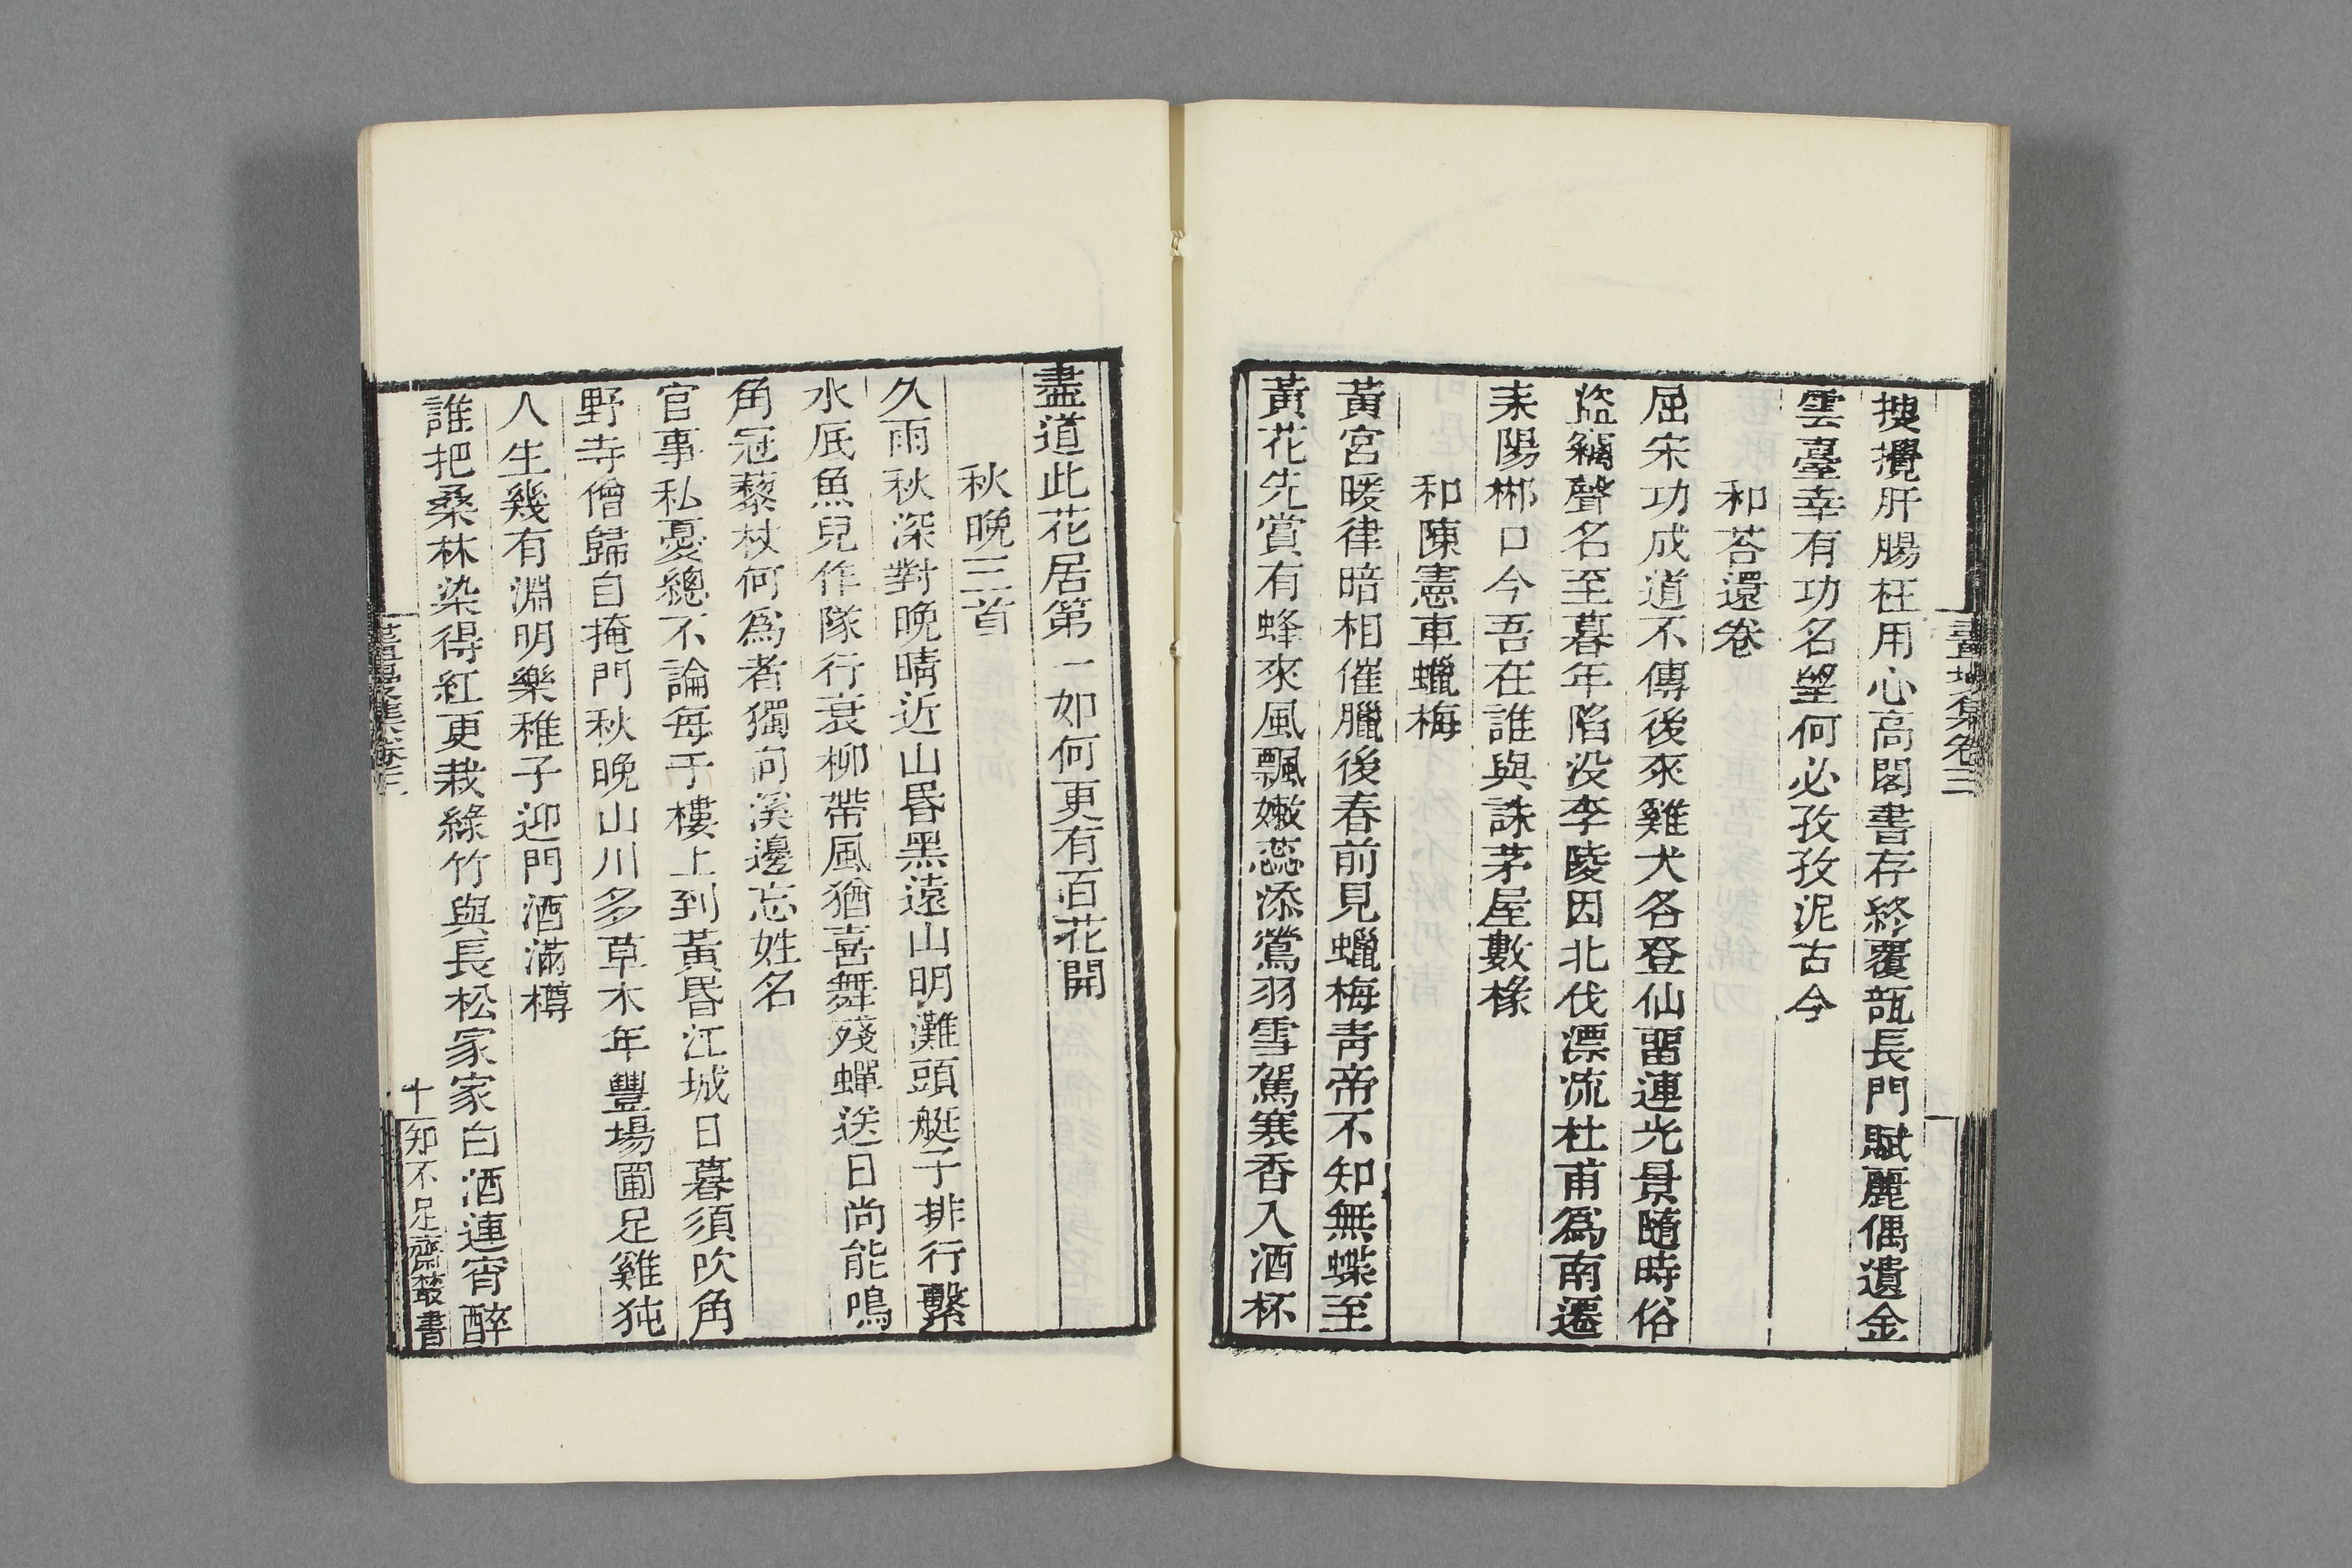 畫墁集卷三
搜攪肝腸枉用心高閣書存終覆瓿長門賦麗偶遺金
雲臺幸有功名望何必孜孜泥古今
和荅還卷
屈宋功成道不傳後來雞犬各登仙畱連光景隨時俗
盜竊聲名至暮年陷没李陵因北伐漂流杜甫爲南遷
耒陽郴口今吾在誰與誅茅屋數椽
和陳憲車蠟梅
黃宮暖律暗相催臘後春前見蠟梅靑帝不知無蝶至
黃花先賞有蜂來風飄嫩蕊添鶯羽雪駕寒香入酒杯
盡道此花居第一如何更有百花開
秋晚三首
久雨秋深對晚晴近山昬黑遠山明灘頭艇子排行繫
水底魚兒作隊行衰柳帶風猶喜舞殘蟬送日尚能鳴
角冠藜杖何爲者獨向溪邊忘姓名
官事私憂總不論每于樓上到黃昬江城日暮須吹角
野寺僧歸自掩門秋晚山川多草木年豐場圃足雞㹠
人生幾有淵明樂稚子迎門酒滿樽
誰把桑林染得紅更栽綠竹與長松家家白酒連宵醉
畫墁集卷三
十
知不足齋叢書